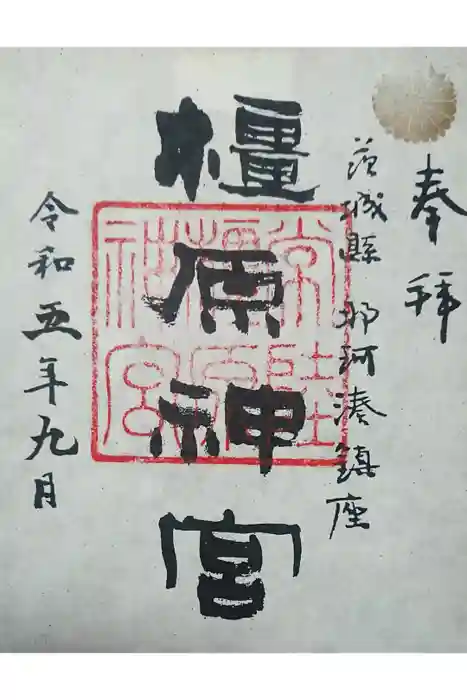 奉拝
茨城縣 那珂湊鎮座
橿原神宮
常陸橿原神宮
令和五年九月